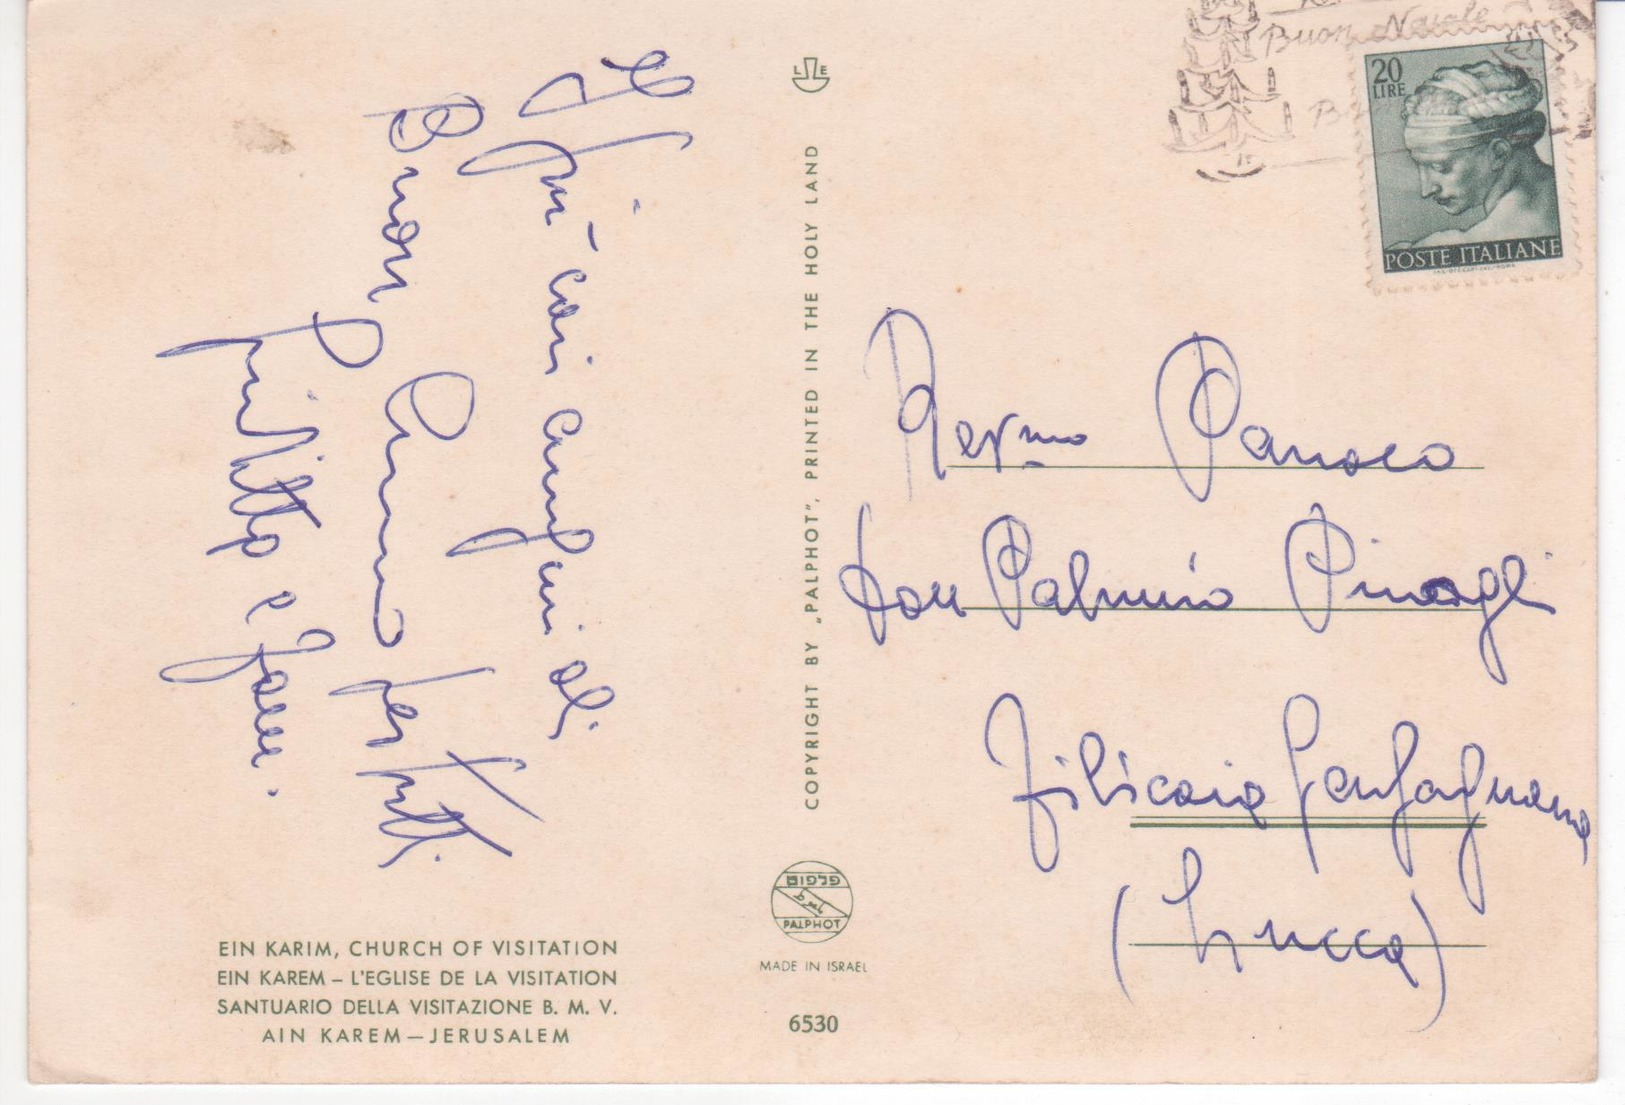 I più cari auguri di
Buon Anno per tutti.
COPYRIGHT BY „PALPHOT", PRINTED IN THE HOLY LAND
L E
פלפוט
PALPHOT
MADE IN ISRAEL
6530
EIN KARIM, CHURCH OF VISITATION
EIN KAREM – L'EGLISE DE LA VISITATION
SANTUARIO DELLA VISITAZIONE B. M. V.
AIN KAREM – JERUSALEM
Buon Natale
20
LIRE
POSTE ITALIANE
Rev.mo Parroco
don Palmiro Pinagli
Filicaia Garfagnana
(Lucca)